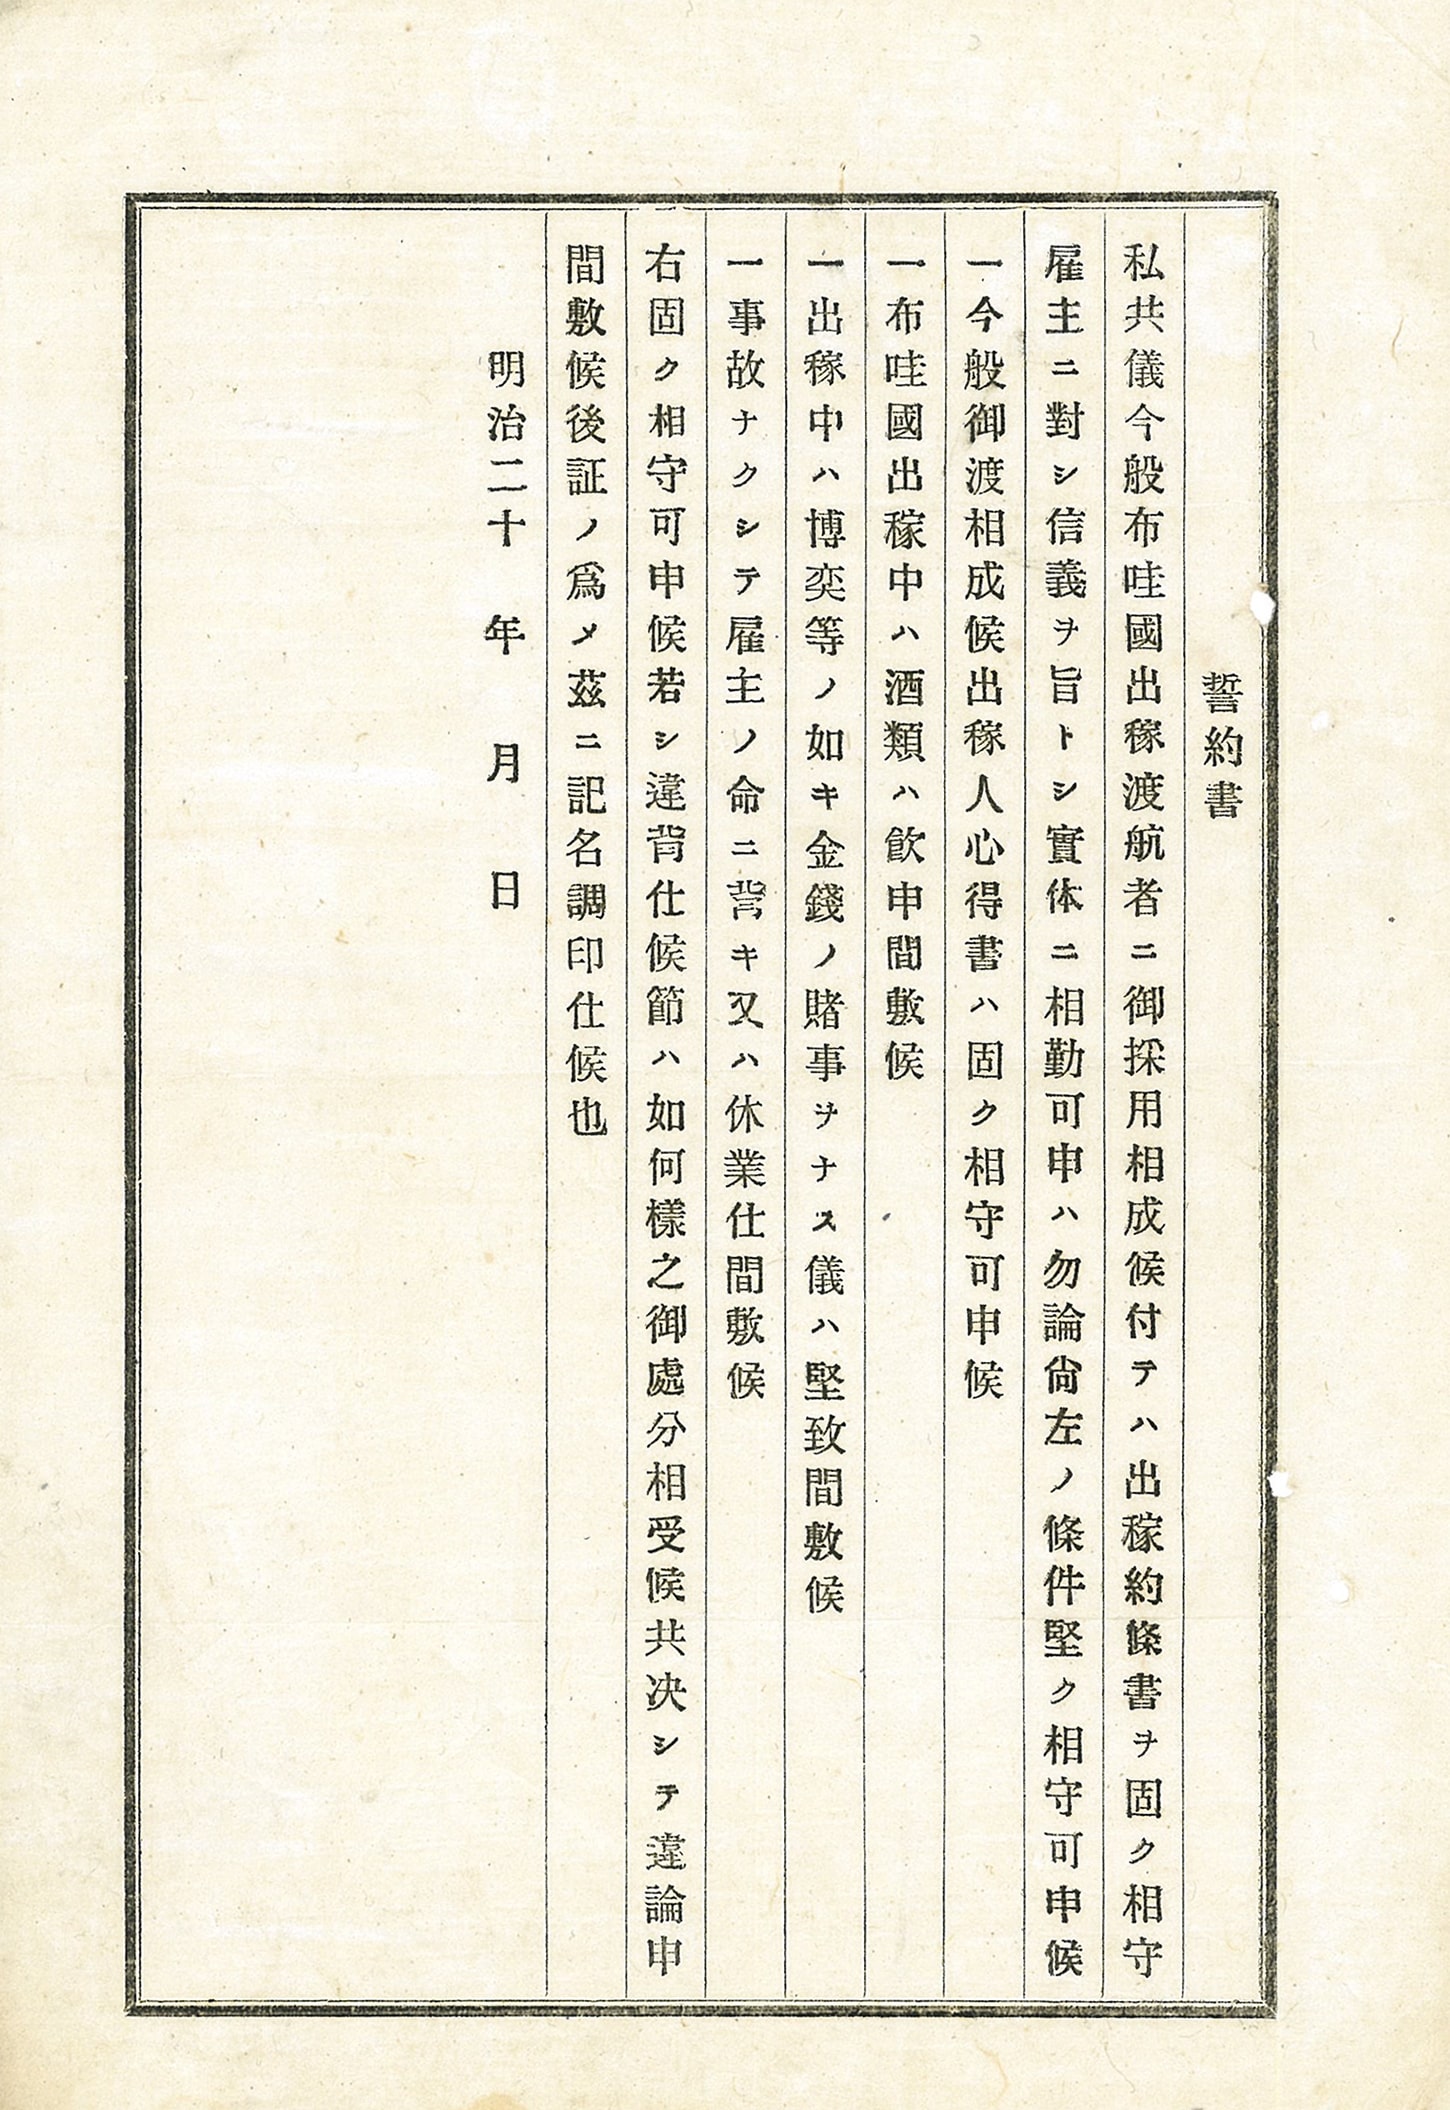 誓約書
私共儀今般布哇國出稼渡航者ニ御採用相成候付テハ出稼約條書ヲ固ク相守
雇主ニ對シ信義ヲ旨トシ實体ニ相勤可申ハ勿論尙左ノ條件堅ク相守可申候
一今般御渡相成候出稼人心得書ハ固ク相守可申候
一布哇國出稼中ハ酒類ハ飮申間敷候
一出稼中ハ博奕等ノ如キ金錢ノ賭事ヲナス儀ハ堅致間敷候
一事故ナクシテ雇主ノ命ニ背キ又ハ休業仕間敷候
右固ク相守可申候若シ違背仕候節ハ如何樣之御處分相受候共决シテ違論申
間敷候後証ノ爲メ茲ニ記名調印仕候也
明治二十　年　月　日